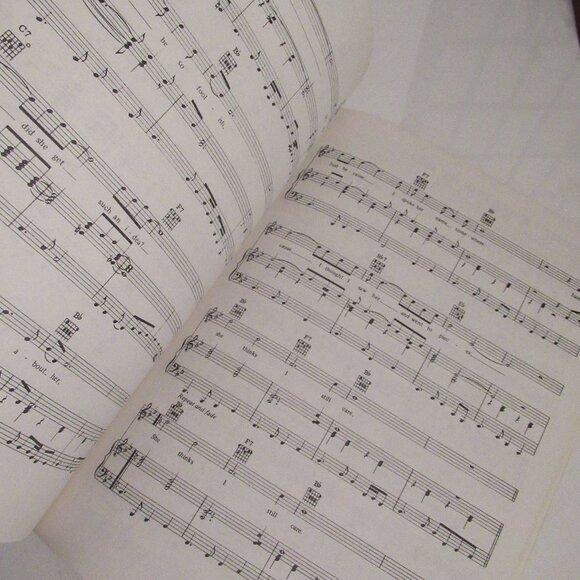 C7
B♭
be so fool - ish,
F7
did she get such an i - dea?
B♭
a - bout her,
F7
B♭
Just be - cause spoke her name some - where,
B♭7
E♭
cause I thought saw her and went to piec - es.
B♭
F7
B♭
She thinks I still care.
Repeat and fade
B♭
F7
B♭
She thinks I still care.